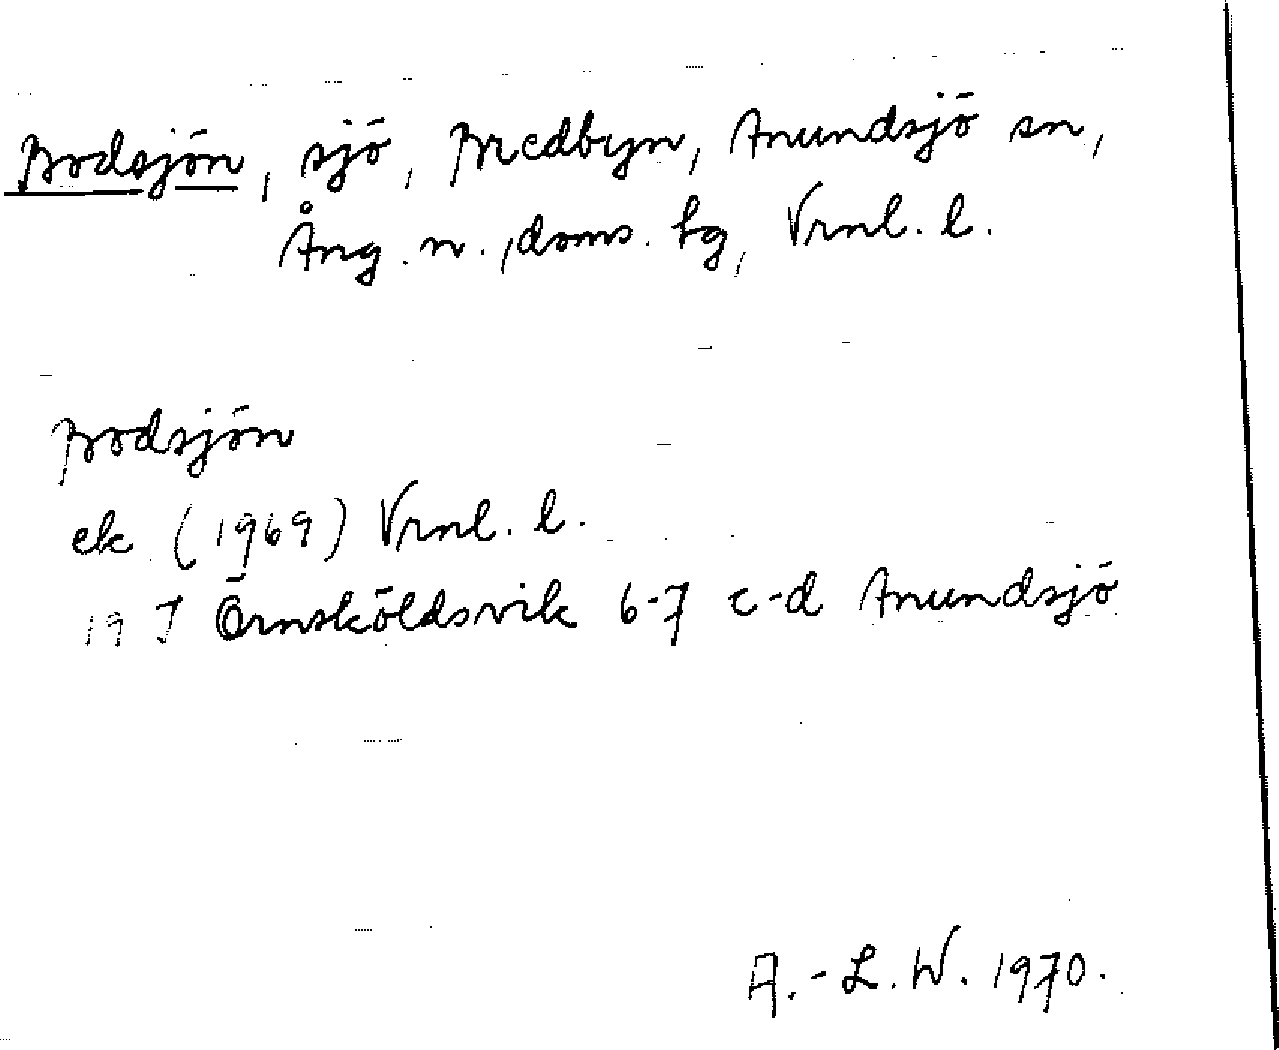 Bodsjön, sjö, Bredbyn, Anundsjö sn,
Ång. n., doms. hg, Vrnl. l.
Bodsjön
ek (1969) Vrnl. l.
19 J Örnsköldsvik 6-7 c-d Anundsjö
A.-L. W. 1970.